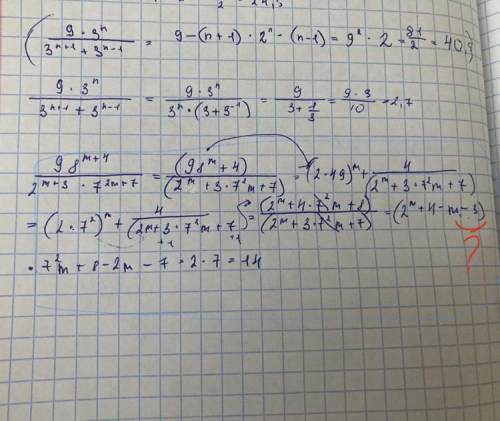 ( 9·3ⁿ / (3ⁿ⁺¹ + 3ⁿ⁻¹) = 9-(n+1)·2ⁿ-(n-1) = 9²·2 = 81/2 = 40,9
9·3ⁿ / (3ⁿ⁺¹ + 3ⁿ⁻¹) = 9·3ⁿ / (3ⁿ·(3+3⁻¹)) = 9 / (3+1/3) = 9·3 / 10 = 2,7
98ᵐ⁺⁴ / (2ᵐ⁺³ · 7²ᵐ⁺⁷) = (98ᵐ+4) / (2ᵐ+3·7²m+7) = (2·49)ᵐ + 4 / (2ᵐ+3·7²m+7)
= (2·7²)ᵐ + 4 / (2m+3·7²m+7) = (2ᵐ+4·7²m+8) / (2ᵐ+3·7²m+7) = (2ᵐ+4-m-3)
+1 +1 ?
· 7²m + 8-2m-7 = 2·7 = 14